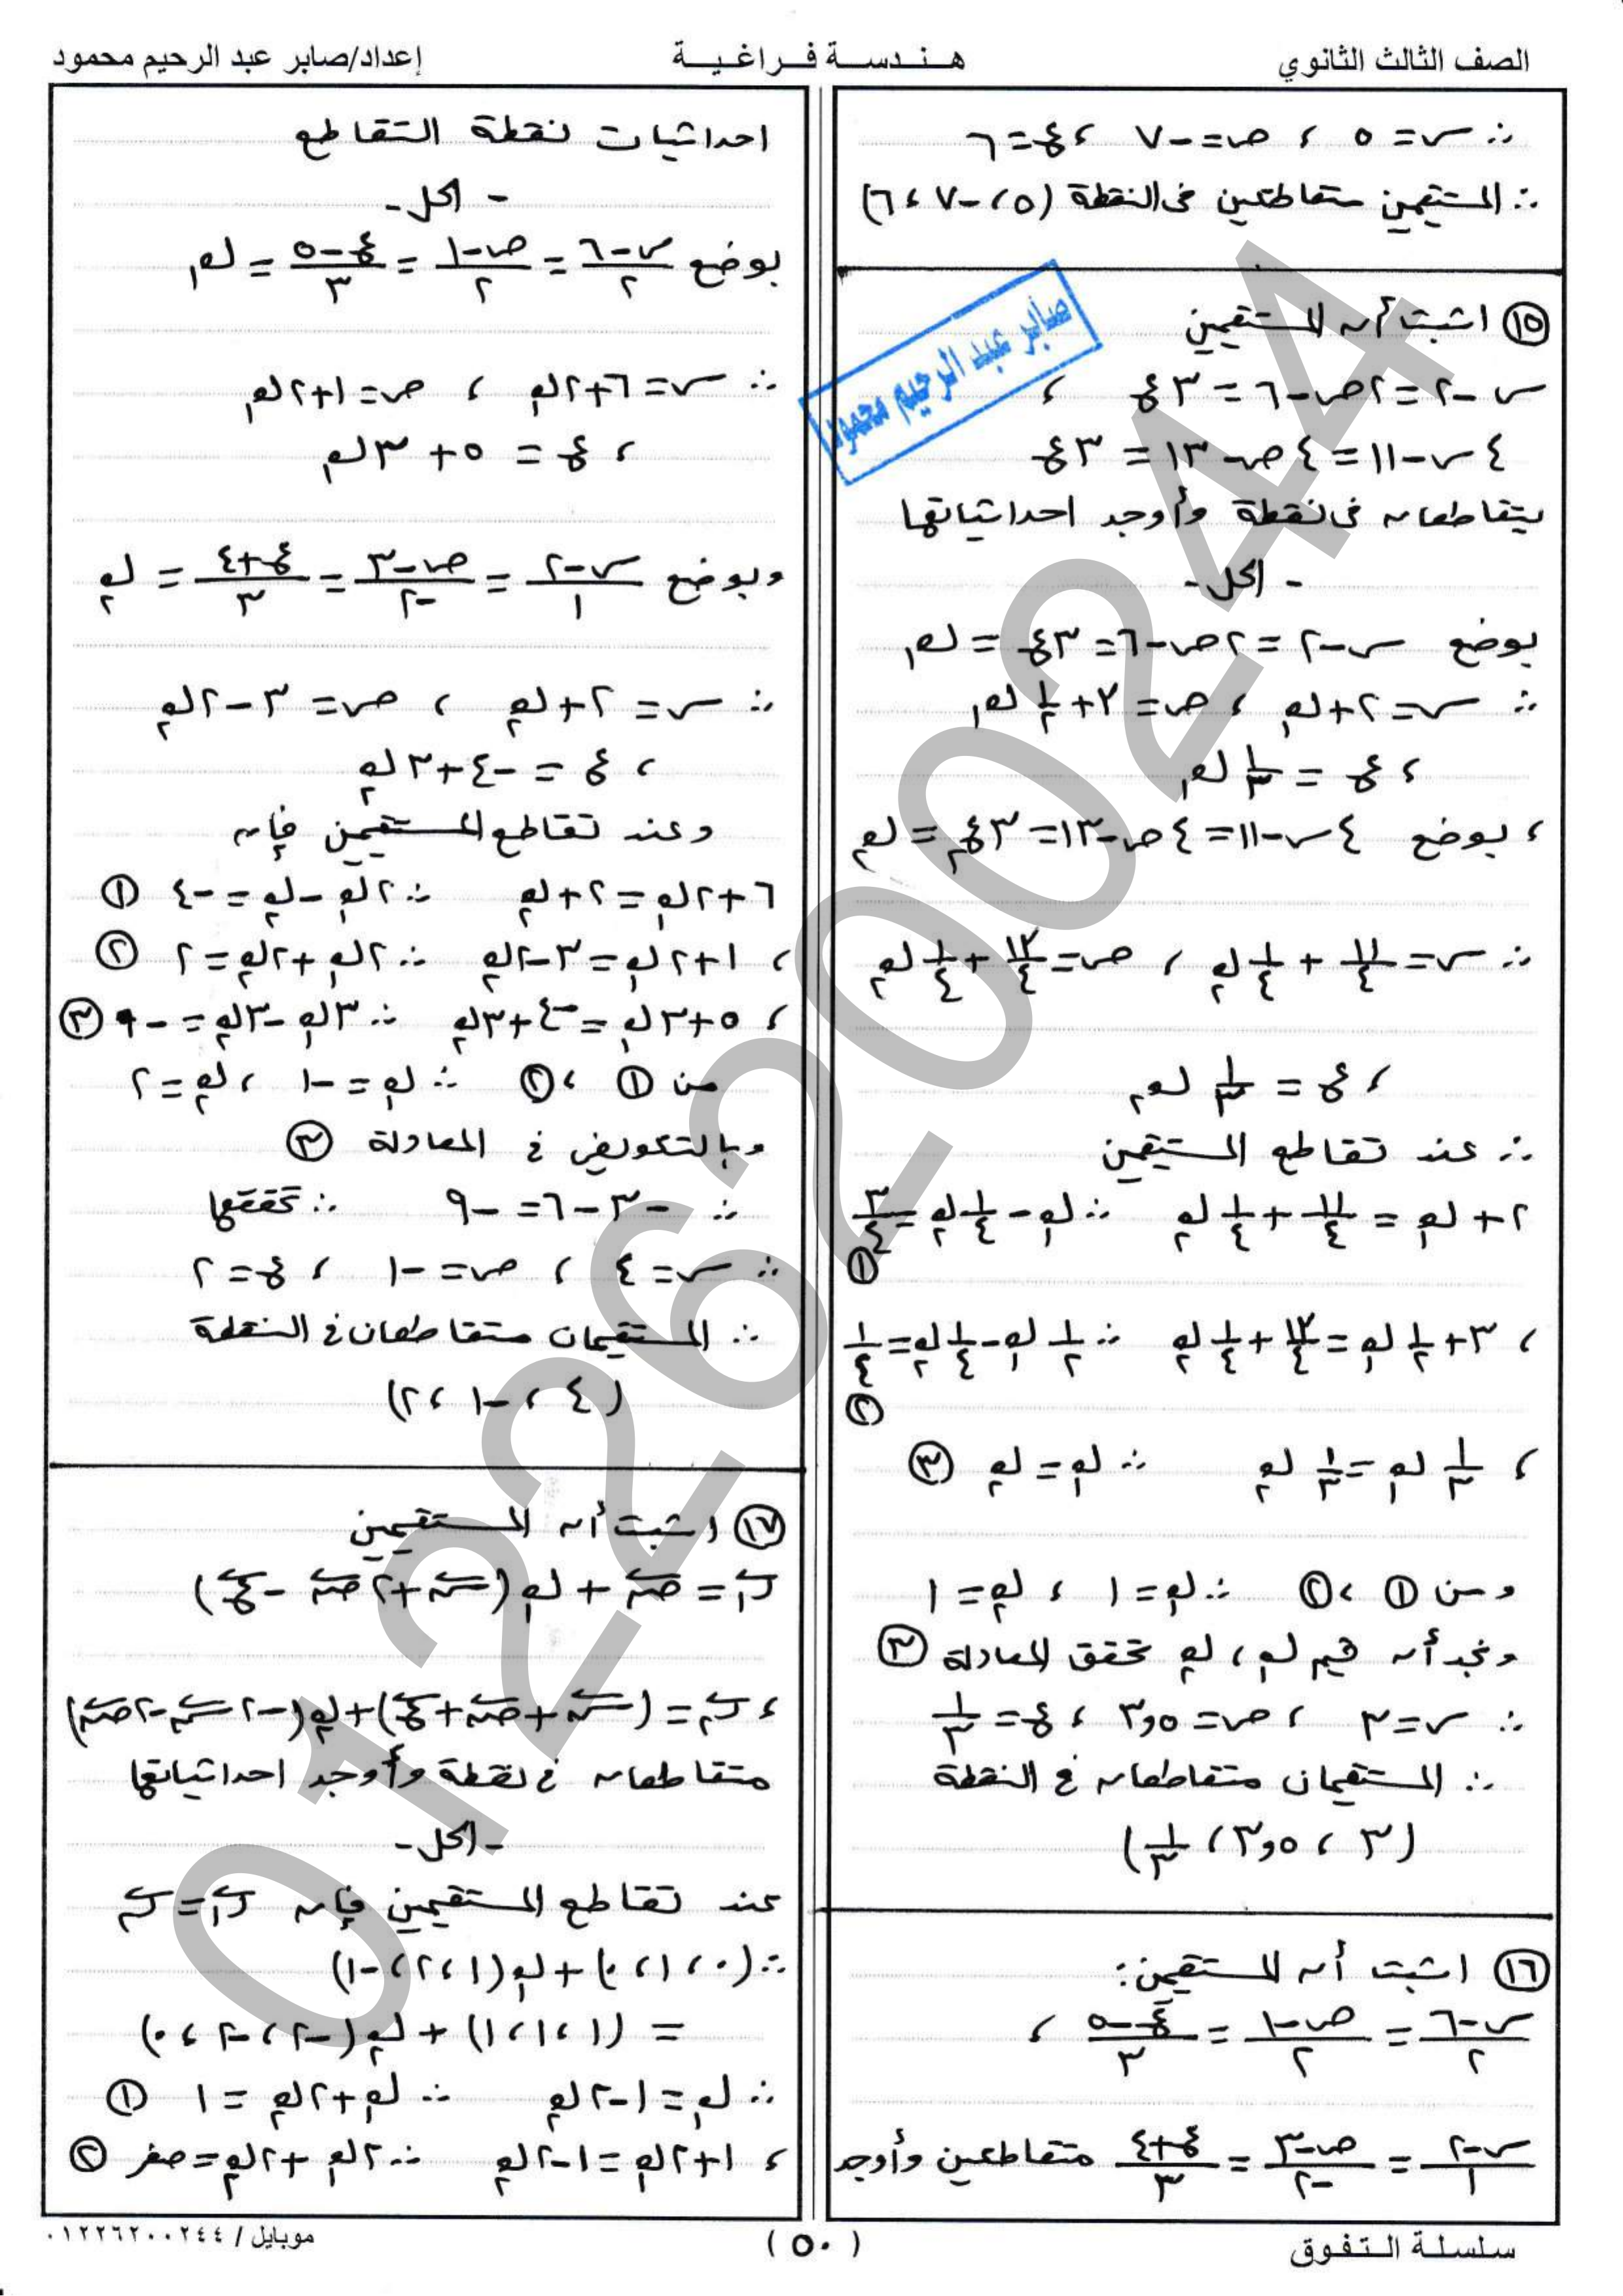 الصف الثالث الثانوي
هـنـدسـة فـراغـيـة
إعداد/صابر عبد الرحيم محمود
∴ س = ٥ ، ص = -٧ ، ع = ٦
∴ المستقيمين متقاطعين في النقطة (٥ ، -٧ ، ٦)
⑮ اثبت أن المستقيمين
س - ٢ = ٢ص - ٦ = ٣ع ،
٤س - ١١ = ٤ص - ١٣ = ٣ع
يتقاطعان في نقطة وأوجد احداثياتها
- الحل -
بوضع س - ٢ = ٢ص - ٦ = ٣ع = ك₁
∴ س = ٢ + ك₁ ، ص = ٣ + ١/٢ ك₁
، ع = ١/٣ ك₁
، بوضع ٤س - ١١ = ٤ص - ١٣ = ٣ع = ك₂
∴ س = ١١/٤ + ١/٤ ك₂ ، ص = ١٣/٤ + ١/٤ ك₂
، ع = ١/٣ ك₂
∴ عند تقاطع المستقيمين
٢ + ك₁ = ١١/٤ + ١/٤ ك₂ ∴ ك₁ - ١/٤ ك₂ = ٣/٤ ①
، ٣ + ١/٢ ك₁ = ١٣/٤ + ١/٤ ك₂ ∴ ١/٢ ك₁ - ١/٤ ك₂ = ١/٤ ②
، ١/٣ ك₁ = ١/٣ ك₂ ∴ ك₁ = ك₂ ③
ومن ① ، ② ∴ ك₁ = ١ ، ك₂ = ١
ونجد أن قيم ك₁ ، ك₂ تحقق المعادلة ③
∴ س = ٣ ، ص = ٣,٥ ، ع = ١/٣
∴ المستقيمان متقاطعان في النقطة
(٣ ، ٣,٥ ، ١/٣)
⑯ اثبت أن المستقيمين :
س-٦/٢ = ص-١/٢ = ع-٥/٣ ،
س-٢/١ = ص-٣/-٢ = ع+٤/٣ متقاطعين وأوجد
احداثيات نقطة التقاطع
- الحل -
بوضع س-٦/٢ = ص-١/٢ = ع-٥/٣ = ك₁
∴ س = ٦ + ٢ك₁ ، ص = ١ + ٢ك₁
، ع = ٥ + ٣ك₁
وبوضع س-٢/١ = ص-٣/-٢ = ع+٤/٣ = ك₂
∴ س = ٢ + ك₂ ، ص = ٣ - ٢ك₂
، ع = -٤ + ٣ك₂
وعند تقاطع المستقيمين فإن
٦ + ٢ك₁ = ٢ + ك₂ ∴ ٢ك₁ - ك₂ = -٤ ①
، ١ + ٢ك₁ = ٣ - ٢ك₂ ∴ ٢ك₁ + ٢ك₂ = ٢ ②
، ٥ + ٣ك₁ = -٤ + ٣ك₂ ∴ ٣ك₁ - ٣ك₂ = -٩ ③
من ① ، ② ∴ ك₁ = -١ ، ك₂ = ٢
وبالتعويض في المعادلة ③
∴ -٣ - ٦ = -٩ ∴ تحققها
∴ س = ٤ ، ص = -١ ، ع = ٢
∴ المستقيمان متقاطعان في النقطة
(٤ ، -١ ، ٢)
⑰ اثبت أن المستقيمين
ر₁ = ص + ك₁(س + ٢ص - ع)
، ر₂ = (س + ص + ع) + ك₂(-٢س - ٢ص)
متقاطعان في نقطة وأوجد احداثياتها
- الحل -
عند تقاطع المستقيمين فإن ر₁ = ر₂
∴ (٠ ، ١ ، ٠) + ك₁(١ ، ٢ ، -١)
= (١ ، ١ ، ١) + ك₂(-٢ ، -٢ ، ٠)
∴ ك₁ = ١ - ٢ك₂ ∴ ك₁ + ٢ك₂ = ١ ①
، ١ + ٢ك₁ = ١ - ٢ك₂ ∴ ٢ك₁ + ٢ك₂ = صفر ②
صابر عبد الرحيم محمود
01226200244
سلسلة الـتـفـوق
( ٥٠ )
موبايل / ٠١٢٢٦٢٠٠٢٤٤